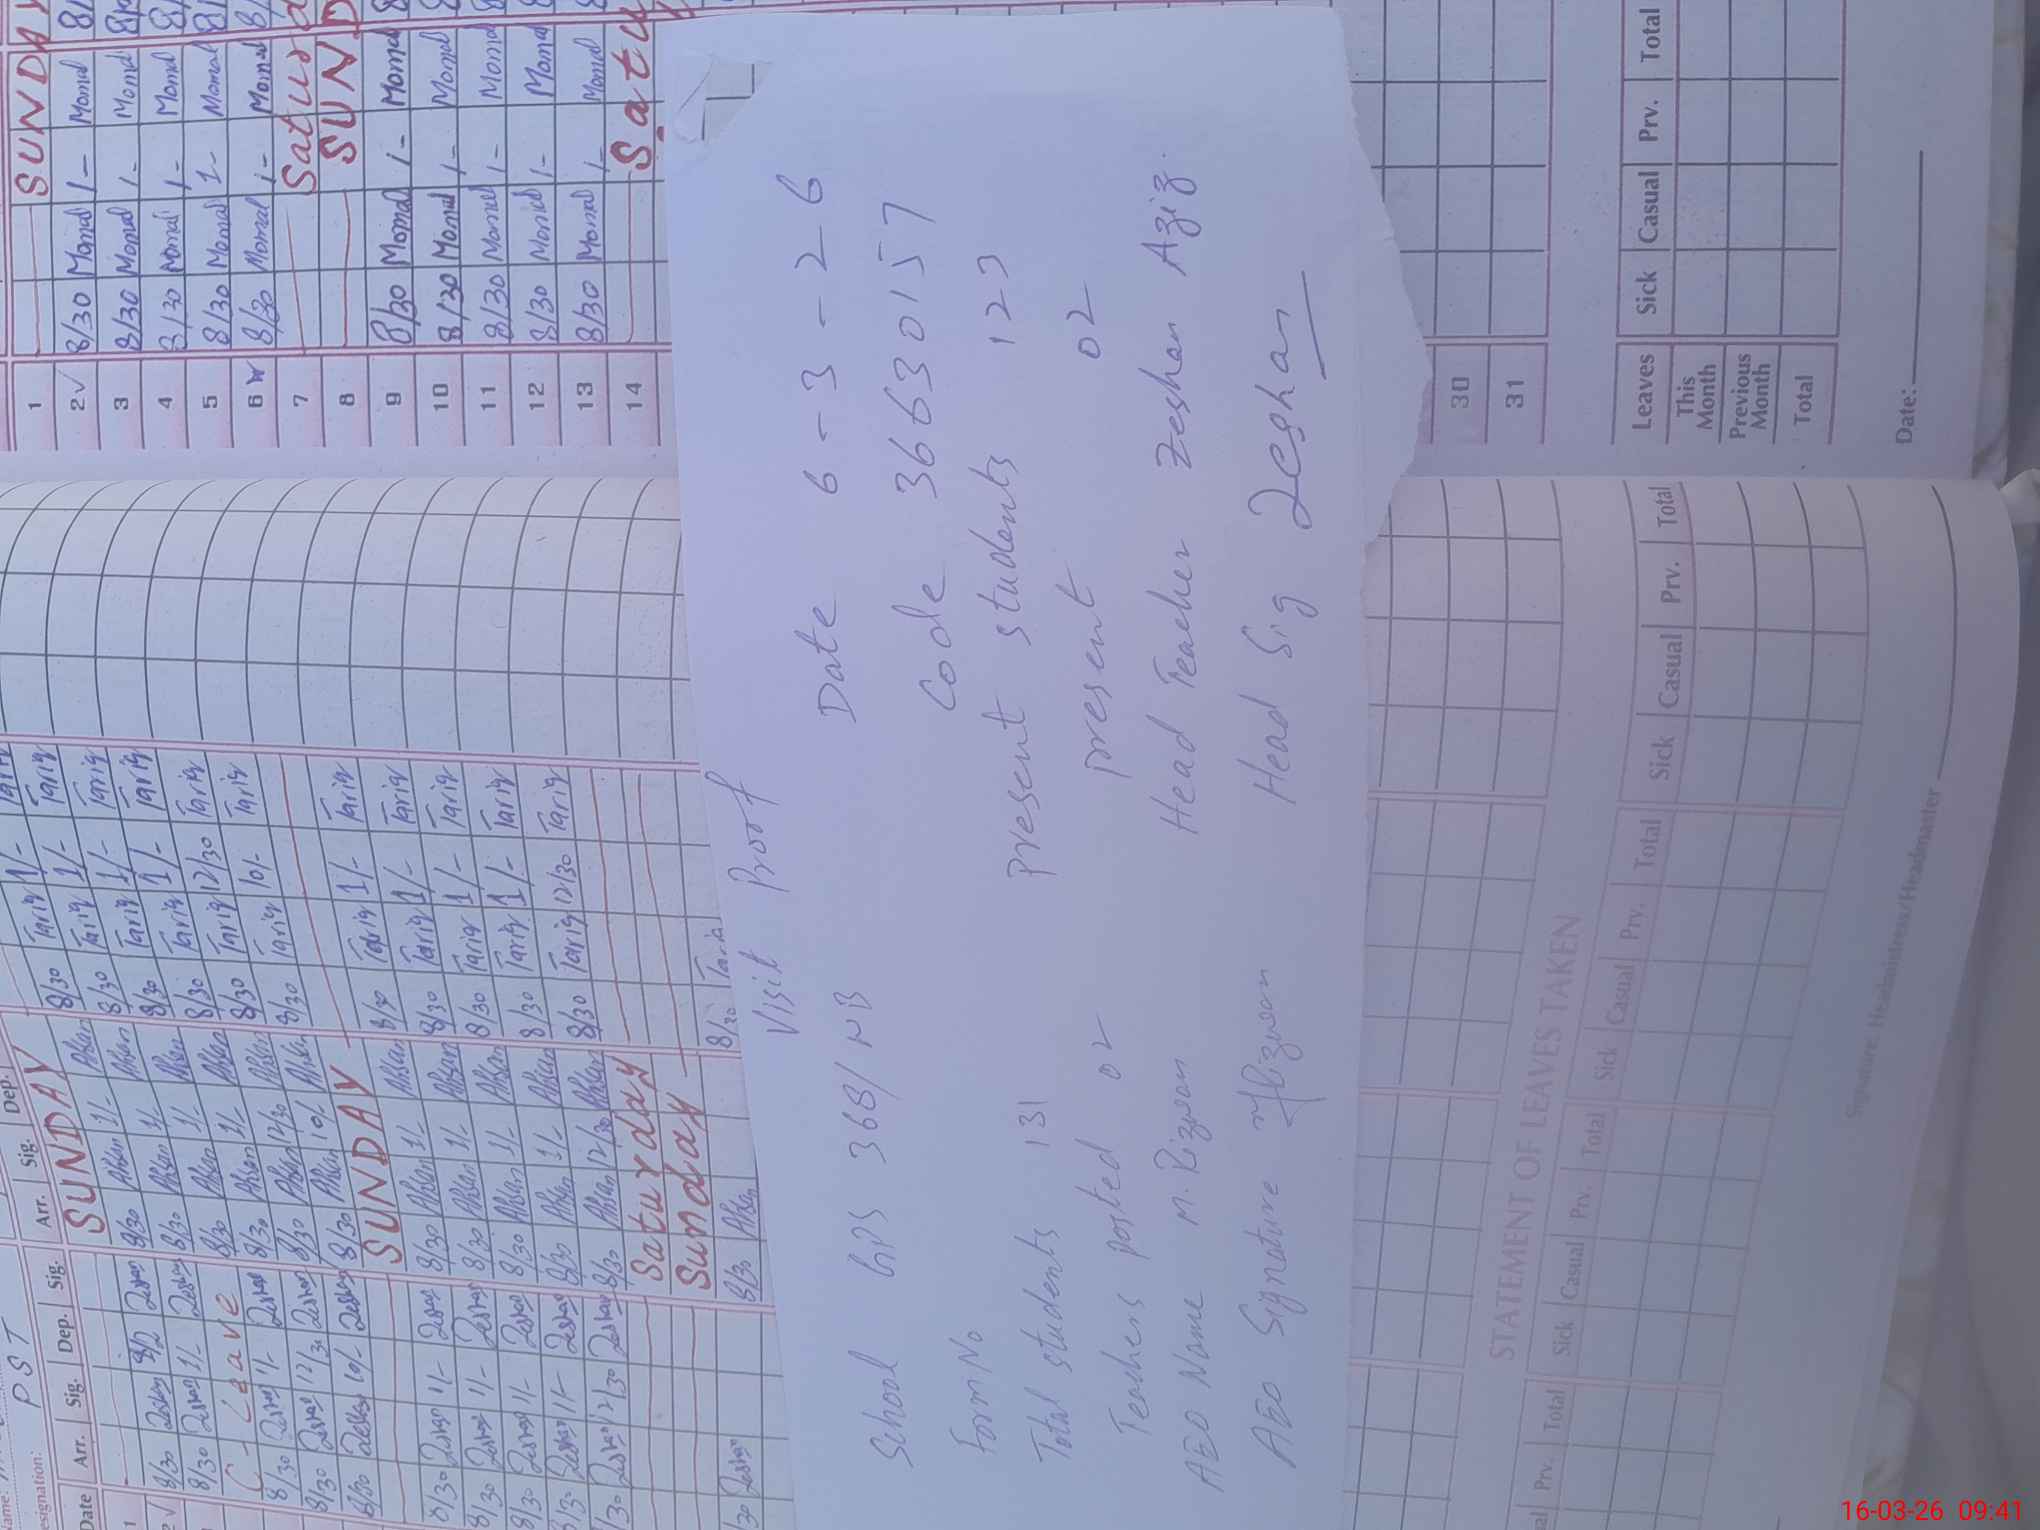 Visit Proof
School GPS 368/NB Date 6-3-26
Form No Code 36630157
Total students 131 Present students 123
Teachers posted 02 Present 02
AEO Name M. Rizwan Head Teacher Zeshan Aziz.
AEO Signature MRizwan Head Sig Zeshan
PST
Date Arr. Sig. Dep. Sig. Arr. Sig. Dep.
SUNDAY
8/30 Zeshan Zeshan 8/30 Ahsan 1/- Ahsan 8/30 Tariq 1/- Tariq
8/30 Zeshan 1/- Zeshan 8/30 Ahsan 1/- Ahsan 8/30 Tariq 1/- Tariq
C-Leave 8/30 Ahsan 1/- Ahsan 8/30 Tariq 1/- Tariq
8/30 Zeshan 1/- Zeshan 8/30 Ahsan 1/- Ahsan 8/30 Tariq 1/- Tariq
8/30 Zeshan 12/30 Zeshan 8/30 Ahsan 12/30 Ahsan 8/30 Tariq 12/30 Tariq
8/30 Zeshan 10/- Zeshan 8/30 Ahsan 10/- Ahsan 8/30 Tariq 10/- Tariq
SUNDAY
8/30 Zeshan 1/- Zeshan 8/30 Ahsan 1/- Ahsan 8/30 Tariq 1/- Tariq
8/30 Zeshan 1/- Zeshan 8/30 Ahsan 1/- Ahsan 8/30 Tariq 1/- Tariq
8/30 Zeshan 1/- Zeshan 8/30 Ahsan 1/- Ahsan 8/30 Tariq 1/- Tariq
8/30 Zeshan 1/- Zeshan 8/30 Ahsan 1/- Ahsan 8/30 Tariq 1/- Tariq
8/30 Zeshan 12/30 Zeshan 8/30 Ahsan 12/30 Ahsan 8/30 Tariq 12/30 Tariq
Saturday
Sunday
8/30 Zeshan 8/30 Ahsan 8/30 Tariq
STATEMENT OF LEAVES TAKEN
Prv. Total Sick Casual Prv. Total Sick Casual Prv. Total Sick Casual Prv. Total
Signature: Headmistress/Headmaster
1 SUNDAY
2 8/30 Momal 1- Momal
3 8/30 Momal 1- Momal
4 8/30 Momal 1- Momal
5 8/30 Momal 1- Momal
6 8/30 Momal 1- Momal
7 Saturda
8 SUND
9 8/30 Momal 1- Momal
10 8/30 Momal 1- Momal
11 8/30 Momal 1- Momal
12 8/30 Momal 1- Momal
13 8/30 Momal 1- Momal
14 Satu
30
31
Leaves Sick Casual Prv. Total
This Month
Previous Month
Total
Date:
16-03-26 09:41